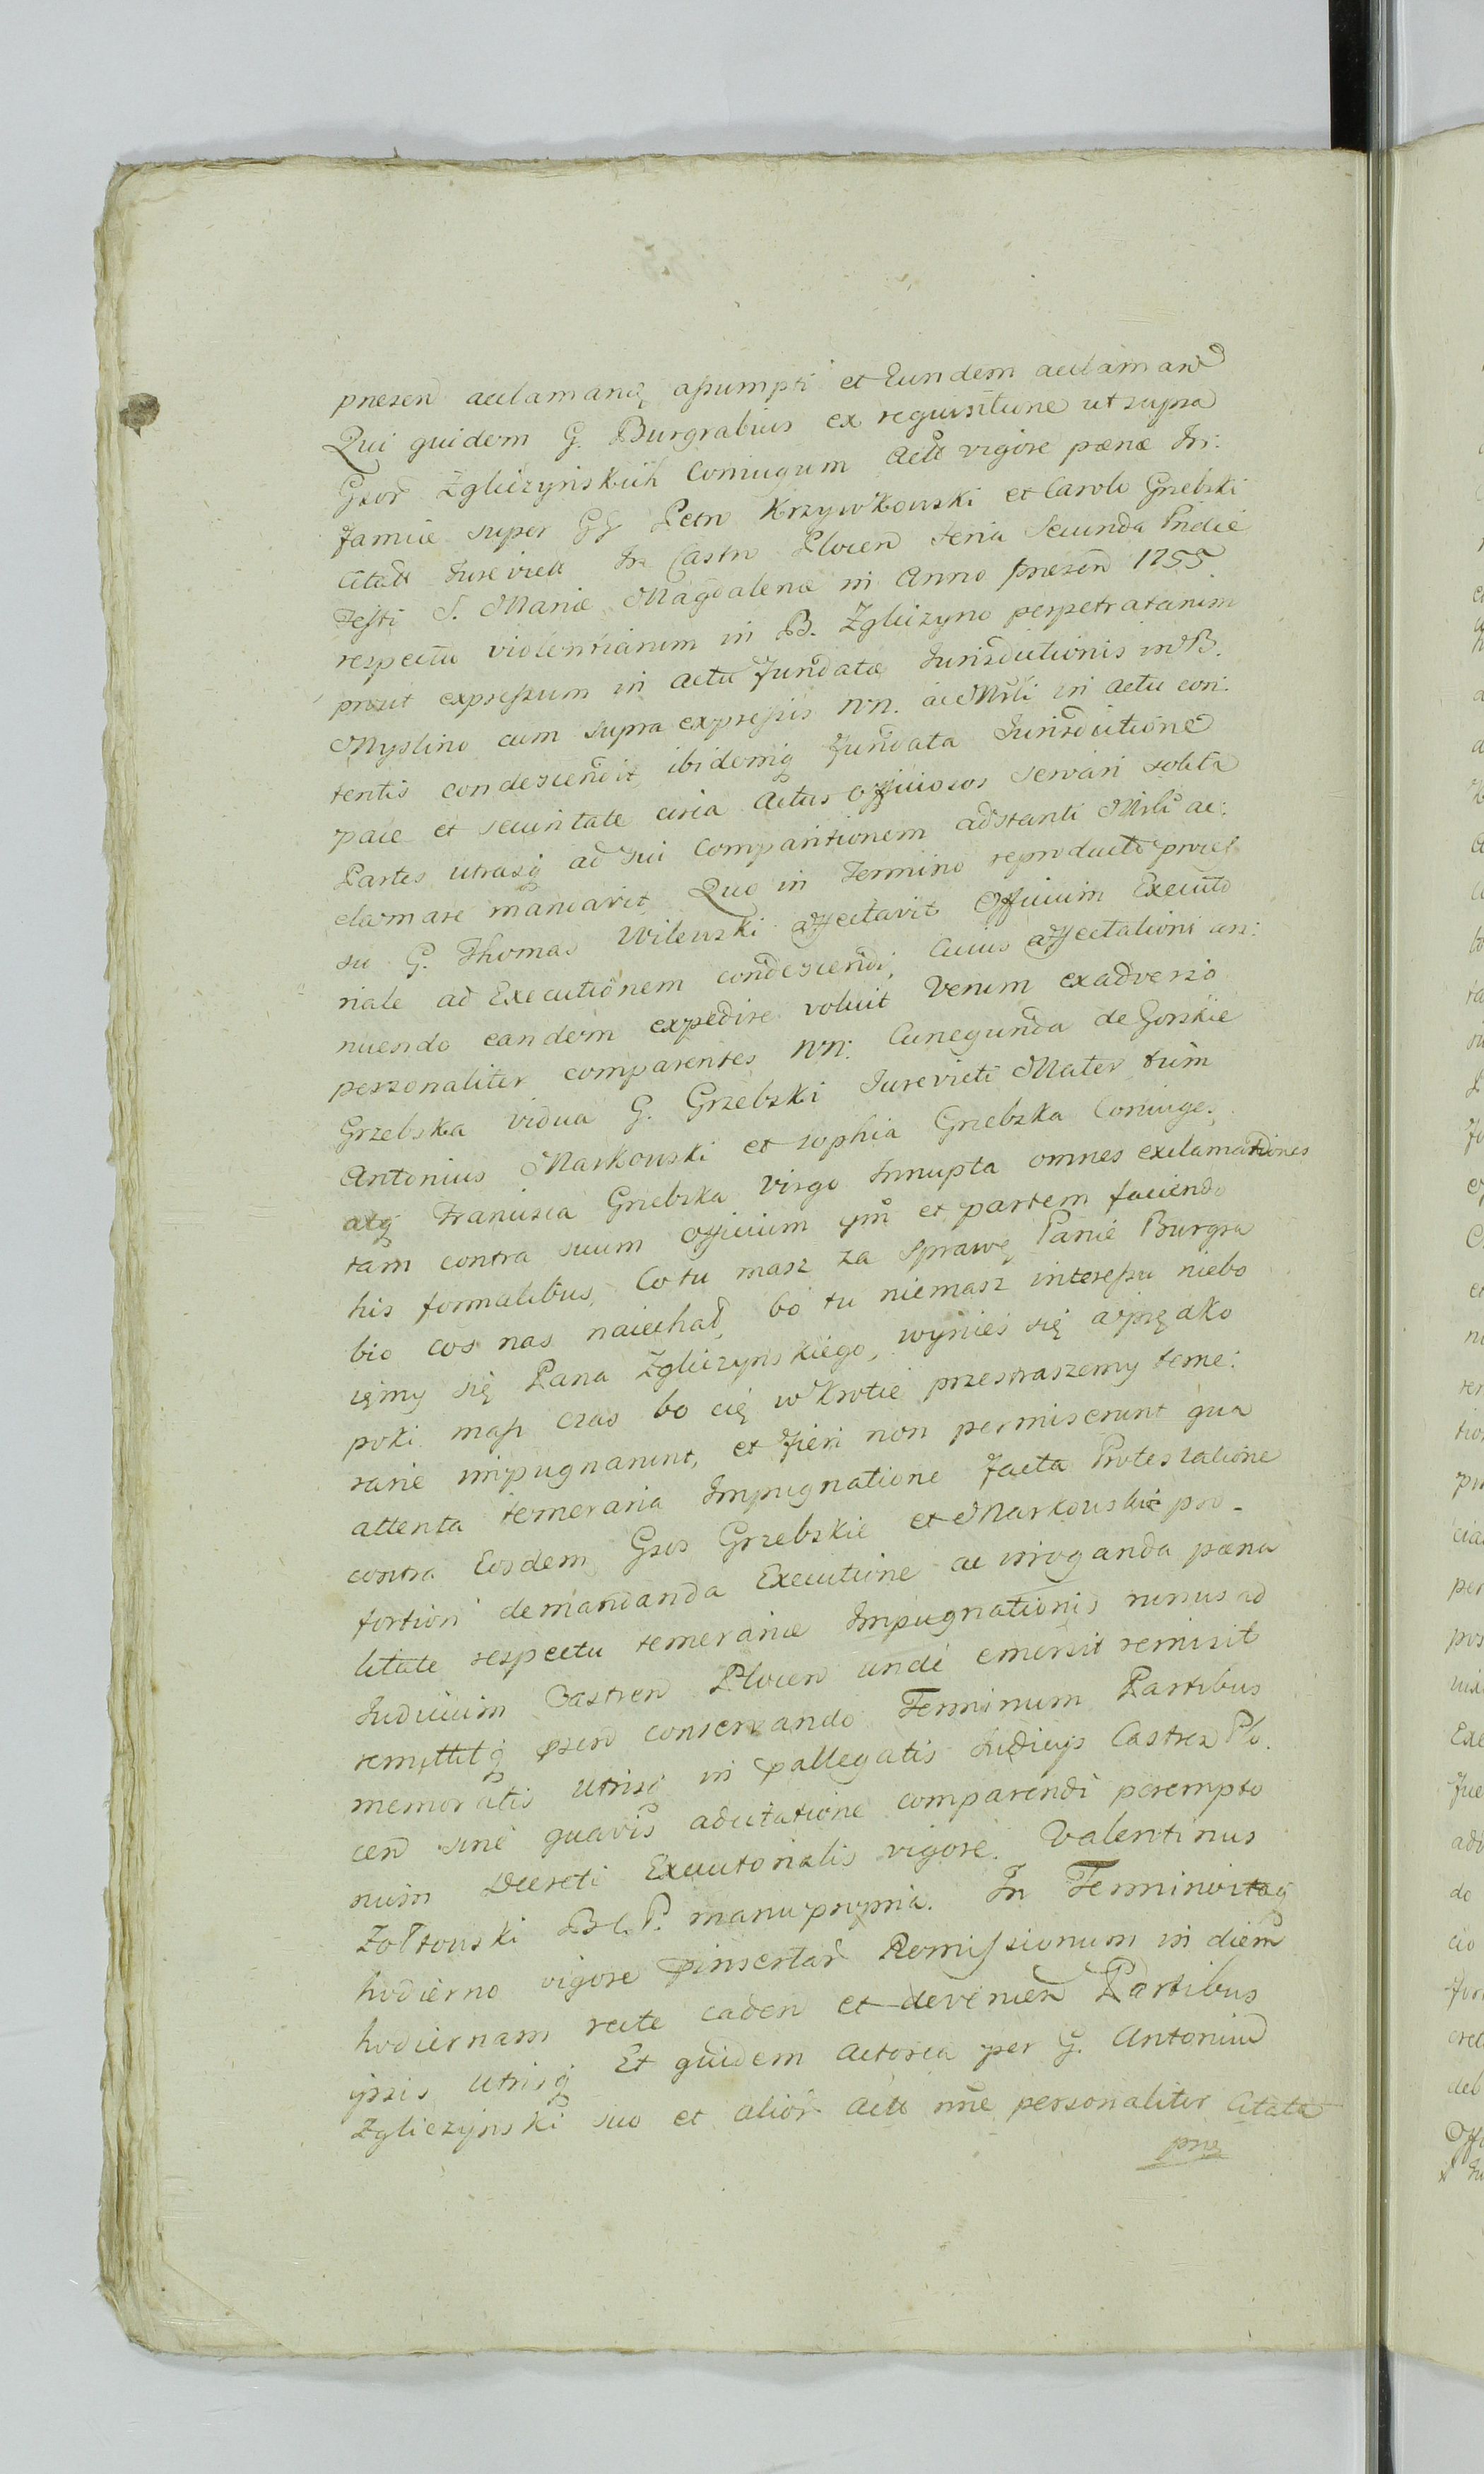 presen acclamanq assumpti et Eundem acclaman
Qui quidem G. Burgrabius ex requisitione ut supra
Gsor Zgliczynskich Coniugum Actt vigore pænæ In:
famiæ super GG Petro Krzywkowski et Carolo Grzebski
Citatt Jurevictt In Castro Plocen Feria Secunda Pridie
Festi S. Mariæ Magdalenæ in Anno præsen 1755
respectu violentiarum in B. Zgliczyno perpetratarum
prout expressum in Actu fundatæ Jurisdictionis in B.
Myslino cum supra expressis NN. ac Mrli in actu con:
tentis condescendit, ibidemq fundata Jurisdictione
pace et securitate circa Actus officiosos servari solita
Partes utrasq ad sui Comparitionem adstanti Mrli ac:
clamare mandavit. Quo in Termino reproducto proces
su G. Thomas Wilewski affectavit Officium Executo
riale ad Executionem condescendi, Cuius affectationi an:
nuendo eandem expedire voluit Verum exadverso
personaliter comparentes NN: Cunegunda de Gorskie
Grzebska vidua G. Grzebski Jurevicti Mater tum
Antonius Markowski et Sophia Grzebska Coniuge:
atq Francisca Grzebska Virgo Innupta omnes exclamationes
tam contra suum Officium qm et partem faciendo
his formalibus, Co tu masz za Sprawę Panie Burgra
bio cos nas naiechał, bo tu niemasz interessu niebo
ięmy się Pana Zgliczynskiego, wynies się a prędko
poki masz czas bo cię w krotce przestraszemy teme:
rarie impugnarunt, et fieri non permiserunt qua
attenta temeraria Impugnatione facta Protestatione
contra Eosdem Gsos Grzebskie et Markowskie pro
fortiori demandanda Executione ac irroganda pæna
litate respectu temerariæ Impugnationis rursus ad
Judicium Castren Plocen unde emersit remisit
remittitq psen conservando Terminum Partibus
memoratis utrisq in pallegatis Judicijs Castren Plo.
cen sine quavis adcitatione comparendi perempto
rium Decreti Executorialis vigore. Valentinus
Zołtowski B. C. P. manu propria. In Termino itaq
hodierno vigore pinsertar Remissionum in diem
hodiernam recte caden et devenien Partibus
ipsis utrisq Et quidem Actorea per G. Antonium
Zgliczynski suo et alior Actt nne personaliter Citata
prns